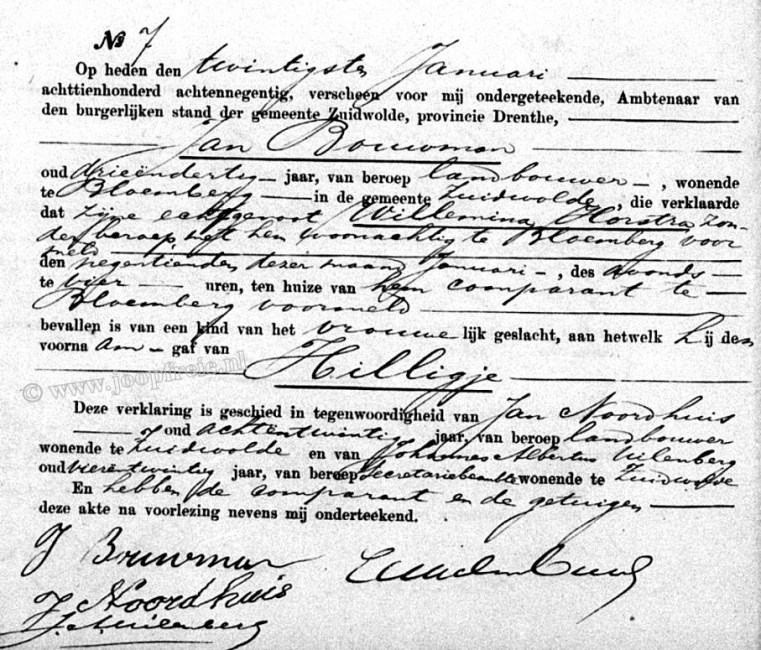 No 7
Op heden den twintigsten Januari
achttienhonderd achtennegentig, verscheen voor mij ondergeteekende, Ambtenaar van
den burgerlijken stand der gemeente Zuidwolde, provincie Drenthe,
Jan Bouwman
oud drieëndertig jaar, van beroep landbouwer, wonende
te Bloemberg in de gemeente Zuidwolde, die verklaarde
dat zijne echtgenoot Willemina Horstra zon-
der beroep, met hem woonachtig te Bloemberg voor
meld
den negentienden dezer maand Januari, des avonds
te vier uren, ten huize van hem comparant te
Bloemberg voormeld
bevallen is van een kind van het vrouwelijk geslacht, aan hetwelk hij den
voornaam gaf van
Hilligje
© www.joopfreie.nl
Deze verklaring is geschied in tegenwoordigheid van Jan Noordhuis
oud achtentwintig jaar, van beroep landbouwer
wonende te Zuidwolde en van Johannes Albertus Uilenberg
oud vierentwintig jaar, van beroep Secretariebeambte wonende te Zuidwolde
En hebben de comparant en de getuigen
deze akte na voorlezing nevens mij onderteekend.
J Bouwman
J Noordhuis
J. A. Uilenberg